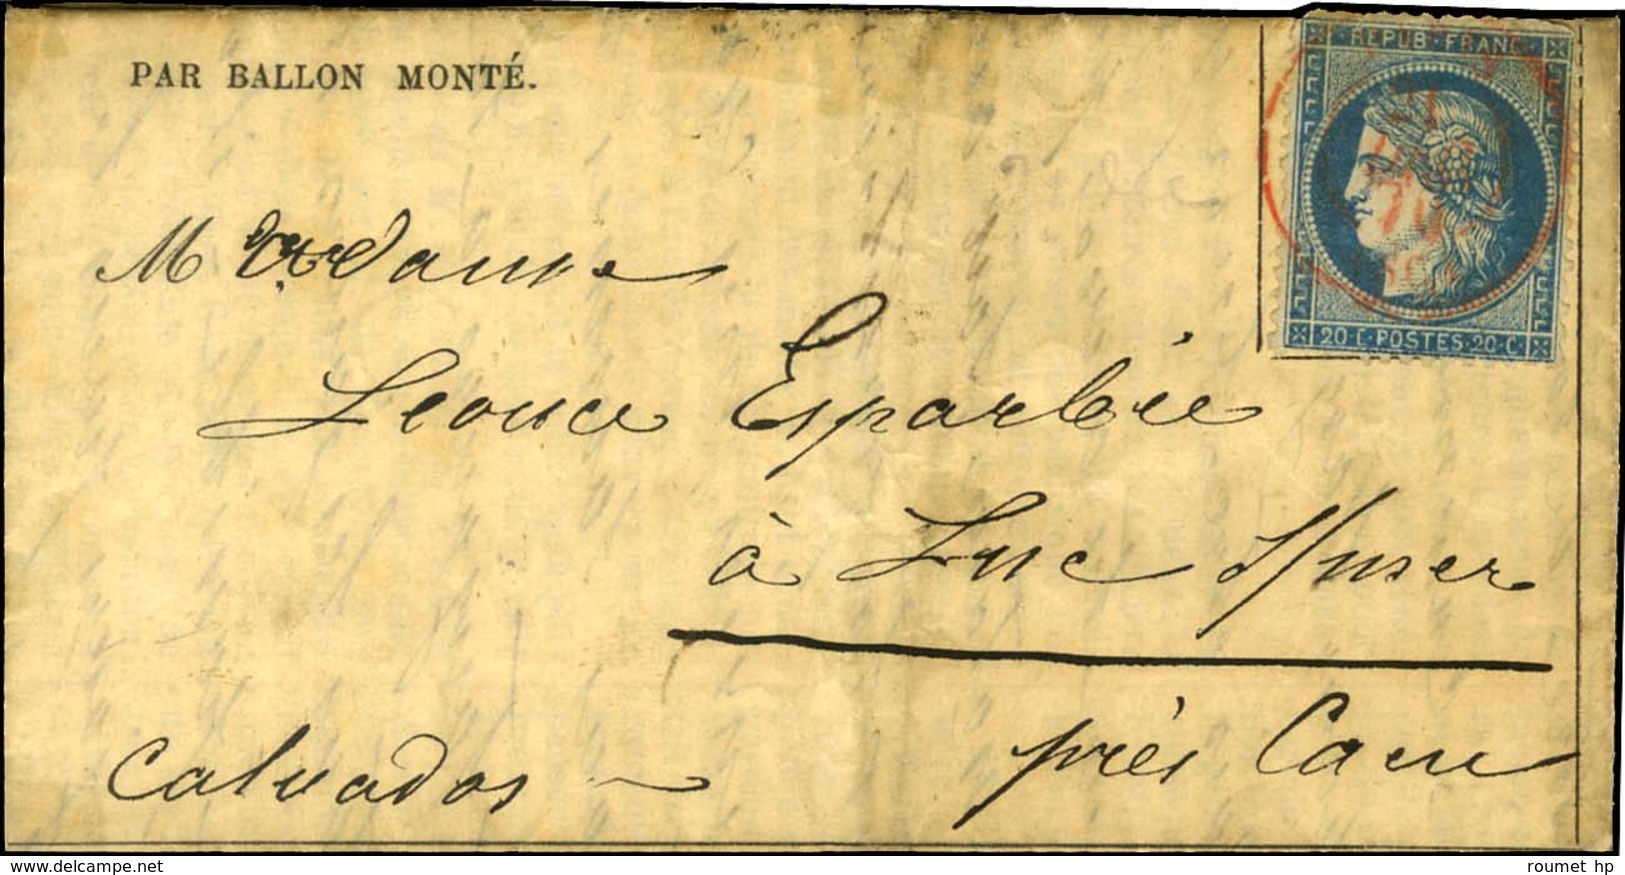 PAR BALLON MONTÉ.
REPUB · FRANC
20 · C · POSTES · 20 · C ·
Madame
Léonce Esparbié
à Luc s/mer
près Caen
Calvados
www.delcampe.net
roumet hp